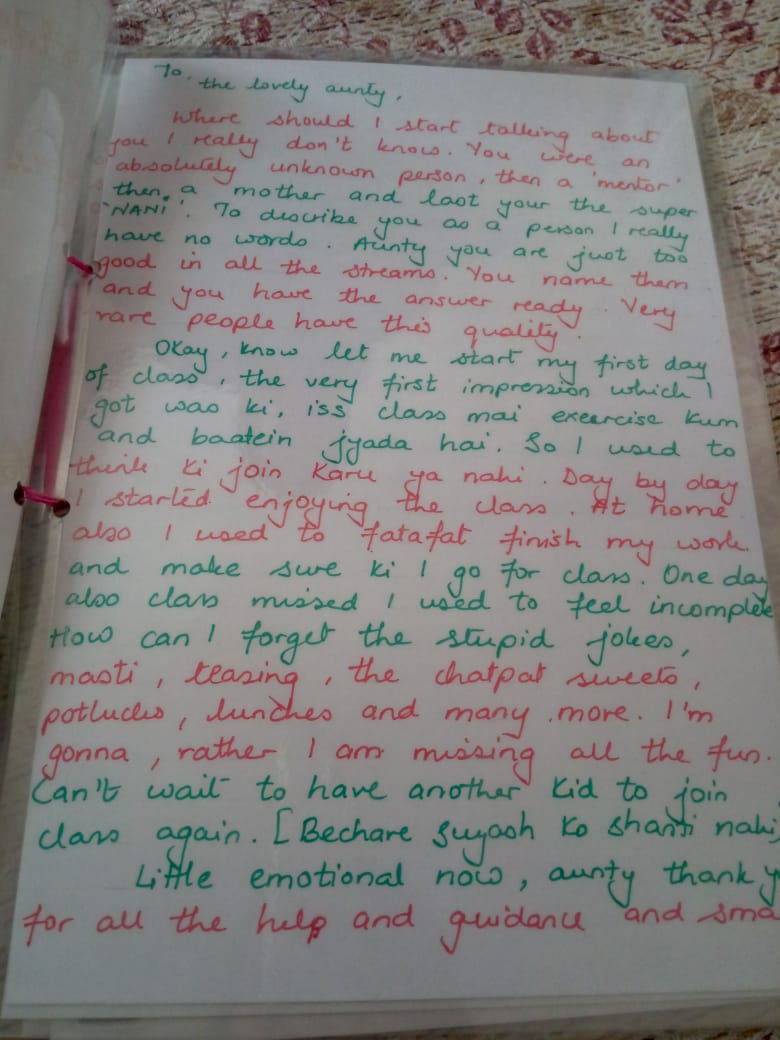 To,
the lovely aunty,
Where should I start talking about
you I really don't know. You were an
absolutely unknown person, then a 'mentor'
then, a mother and last your the super
'NANI'. To describe you as a person I really
have no words. Aunty you are just too
good in all the streams. You name them
and you have the answer ready. Very
rare people have this quality.
Okay, know let me start my first day
of class, the very first impression which I
got was ki, iss class mai exercise kum
and baatein jyada hai. So I used to
think ki join karu ya nahi. Day by day
I started enjoying the class. At home
also I used to fatafat finish my work
and make sure ki I go for class. One day
also class missed I used to feel incomplete
How can I forget the stupid jokes,
masti, teasing, the chatpat sweets,
potlucks, lunches and many more. I'm
gonna, rather I am missing all the fun.
Can't wait to have another kid to join
class again. [Bechare Suyash ko shanti nahi]
Little emotional now, aunty thank y
for all the help and guidance and sma